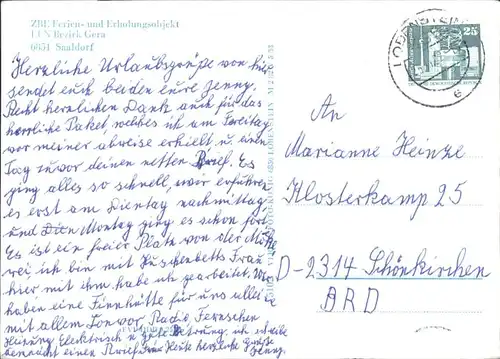 ZBE Ferien- und Erholungsobjekt
LIN Bezirk Gera
6851 Saaldorf
LOBENSTEIN
25
Herzliche Urlaubsgrüße von hier
sendet euch beiden eure Jenny.
Recht herzlichen Dank auch für das
herrliche Paket, welches ich am Freitag
vor meiner abreise erhielt u. einen
Tag zuvor deinen netten Brief. Es
ging alles so schnell, wir erfuhren
es erst am Dienstag nachmittag
und Montag ging es schon fort.
Es ist ein freier Platz von der
ich bin mit Frau
hier mit dem habe ich gearbeitet. Wir
haben eine Finnhütte für uns alleine
mit allem Radio, Fernseher
Heizung Elektrisch u. gute ich schreibe
demnächst einen Brief für Heute herzliche Grüße
Jenny.
An
Marianne Heinze
Klosterkamp 25
D-2314 Schönkirchen
BRD